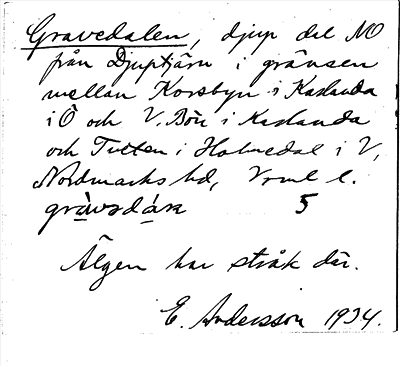 Gravedalen, djup dal NO
från Djuptjärn i gränsen
mellan Korsbyn i Karlanda
i Ö och V. Bön i Karlanda
och Tutten i Holmedal i V,
Nordmarks hd, Vrml l.
gràvsdáṛa 5
Älgen har stråk där.
E. Andersson 1934.